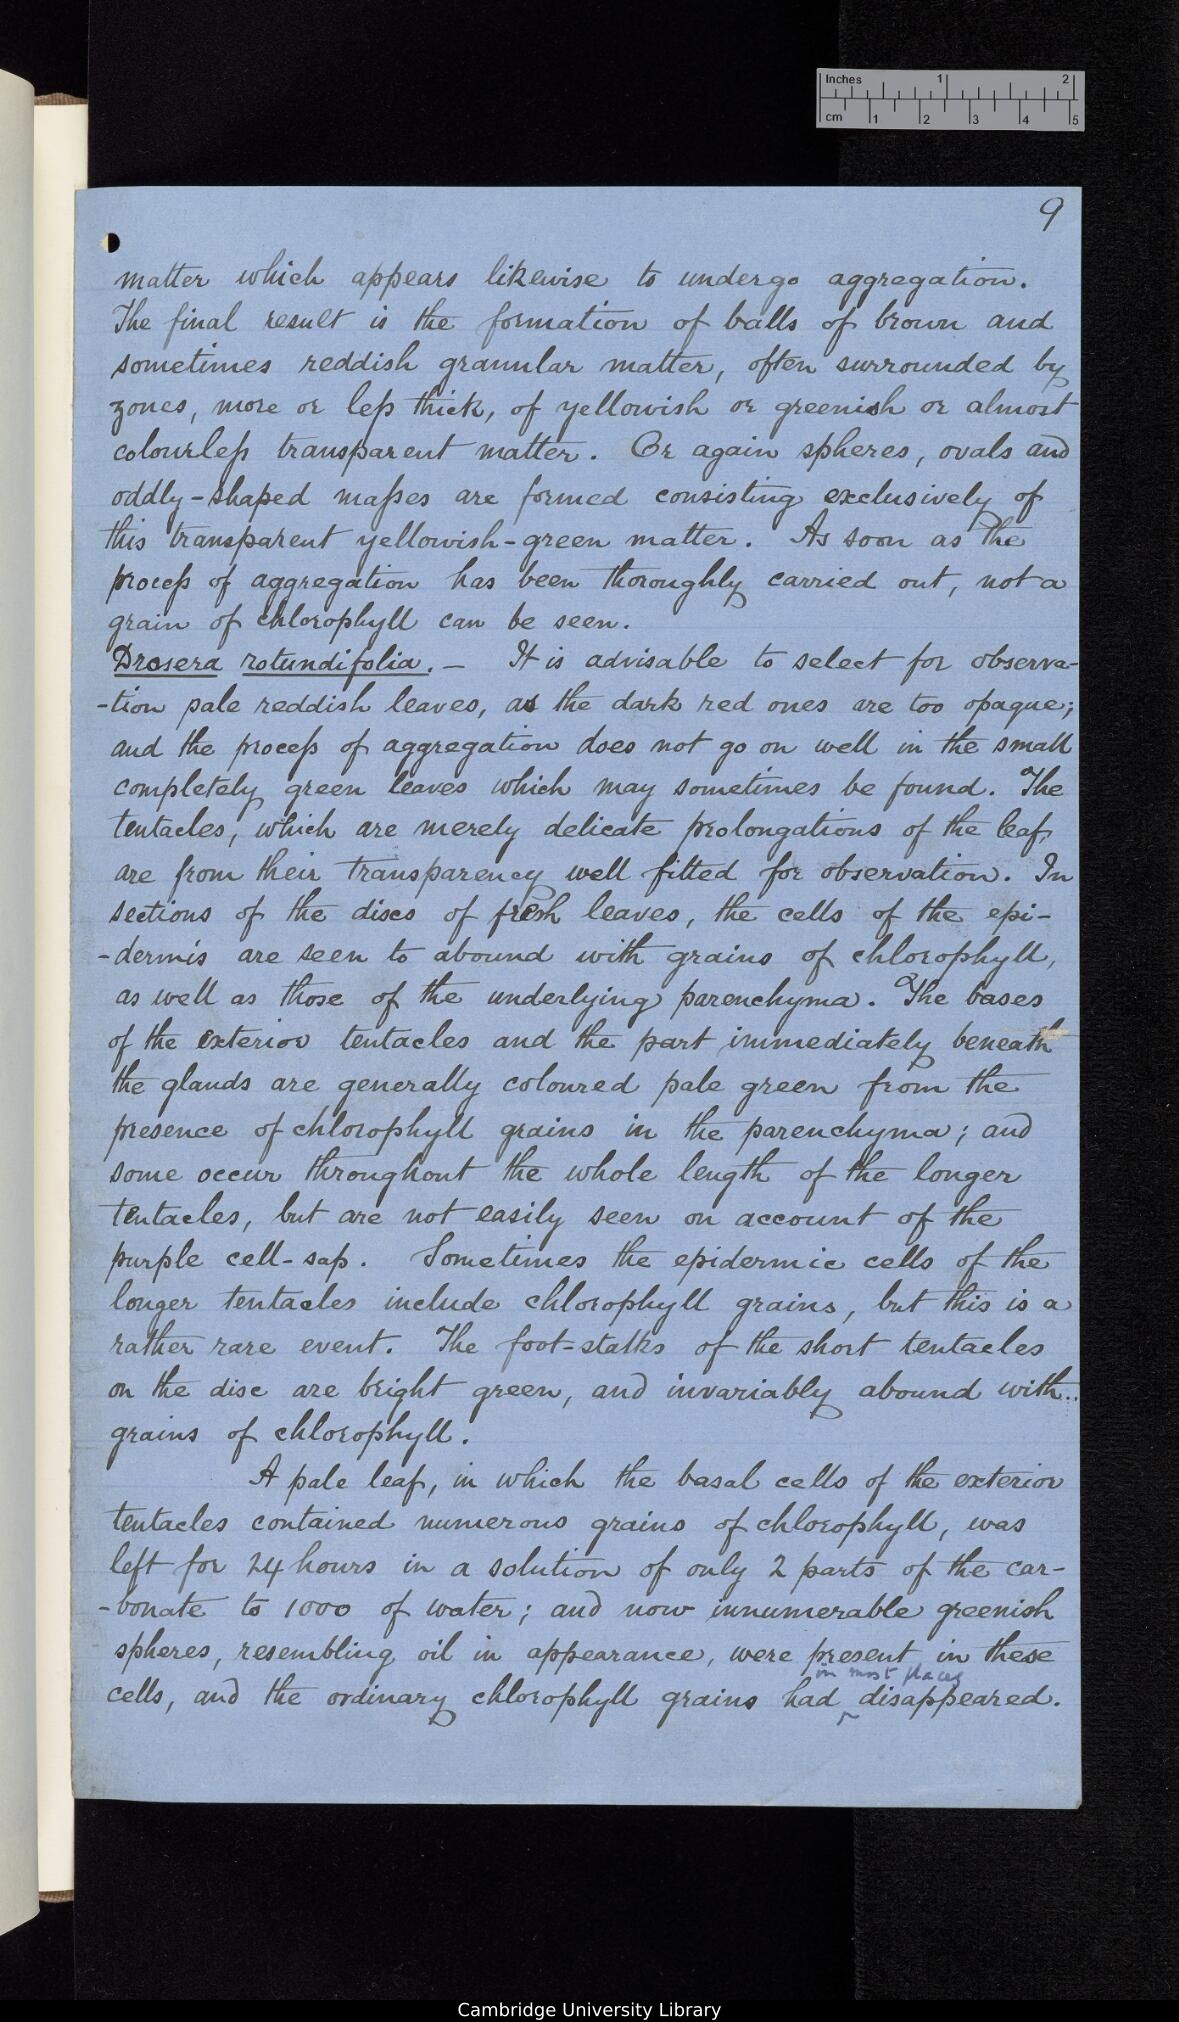 Inches 1 2
cm 1 2 3 4 5
9
matter which appears likewise to undergo aggregation.
The final result is the formation of balls of brown and
sometimes reddish granular matter, often surrounded by
zones, more or less thick, of yellowish or greenish or almost
colourless transparent matter. Or again spheres, ovals and
oddly-shaped masses are formed consisting exclusively of
this transparent yellowish-green matter. As soon as the
process of aggregation has been thoroughly carried out, not a
grain of chlorophyll can be seen.
Drosera rotundifolia. — It is advisable to select for observa-
-tion pale reddish leaves, as the dark red ones are too opaque;
and the process of aggregation does not go on well in the small
completely green leaves which may sometimes be found. The
tentacles, which are merely delicate prolongations of the leaf,
are from their transparency well fitted for observation. In
sections of the discs of fresh leaves, the cells of the epi-
-dermis are seen to abound with grains of chlorophyll,
as well as those of the underlying parenchyma. The bases
of the exterior tentacles and the part immediately beneath
the glands are generally coloured pale green from the
presence of chlorophyll grains in the parenchyma; and
some occur throughout the whole length of the longer
tentacles, but are not easily seen on account of the
purple cell-sap. Sometimes the epidermic cells of the
longer tentacles include chlorophyll grains, but this is a
rather rare event. The foot-stalks of the short tentacles
on the disc are bright green, and invariably abound with
grains of chlorophyll.
A pale leaf, in which the basal cells of the exterior
tentacles contained numerous grains of chlorophyll, was
left for 24 hours in a solution of only 2 parts of the car-
-bonate to 1000 of water; and now innumerable greenish
spheres, resembling oil in appearance, were present in these
in most places
cells, and the ordinary chlorophyll grains had disappeared.
Cambridge University Library